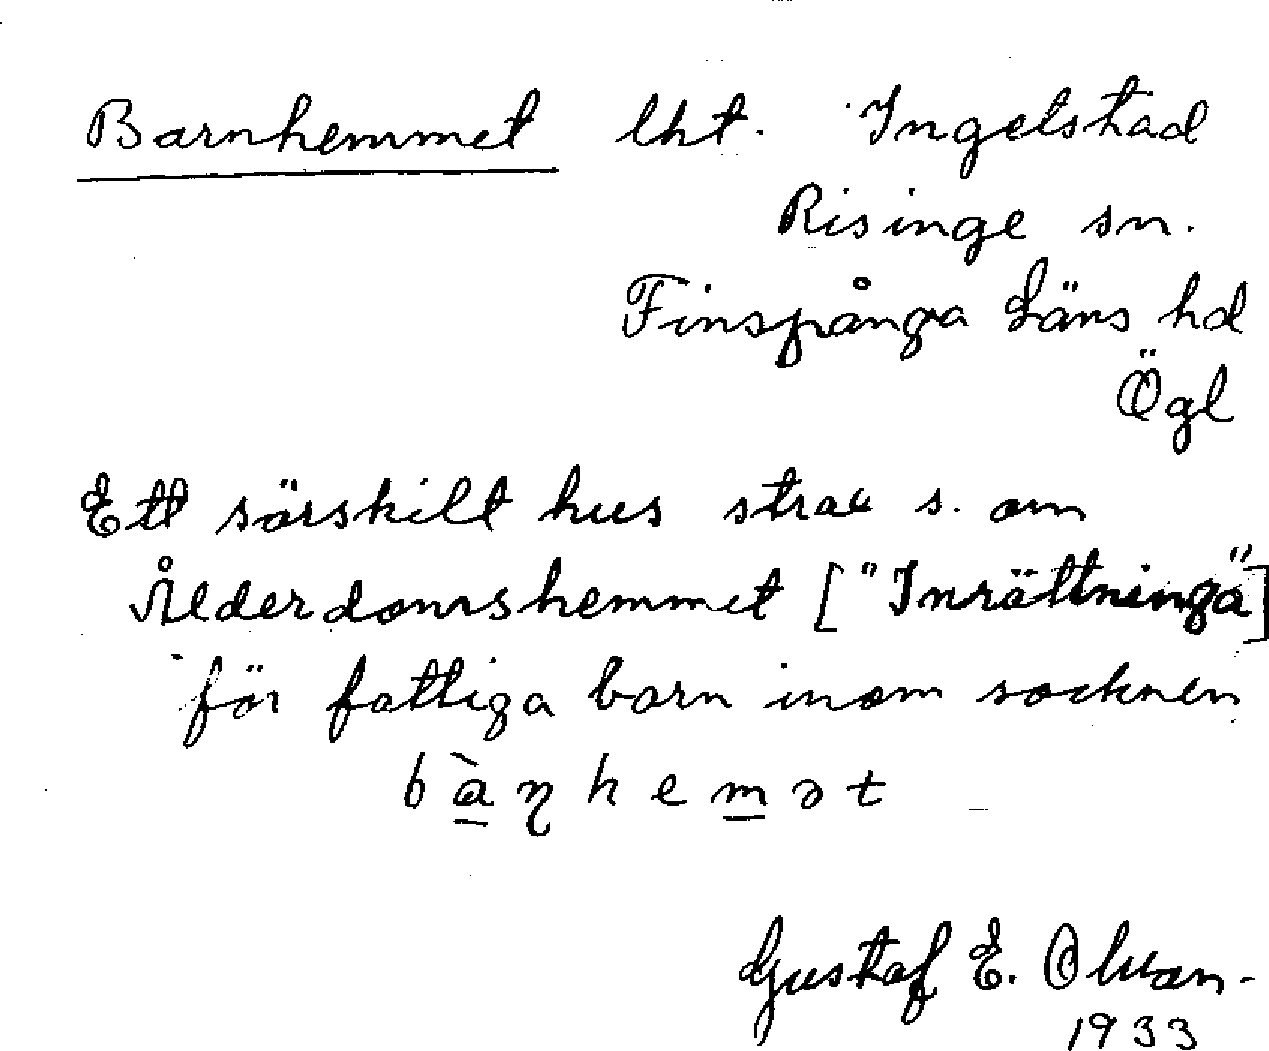 Barnhemmet lht. Ingelstad
Risinge sn.
Finspånga Läns hd
Ögl
Ett särskilt hus strax s. om
Ålderdomshemmet ["Inrättninga"]
för fattiga barn inom socknen
bàn̥hemət
Gustaf E. Olsson.
1933